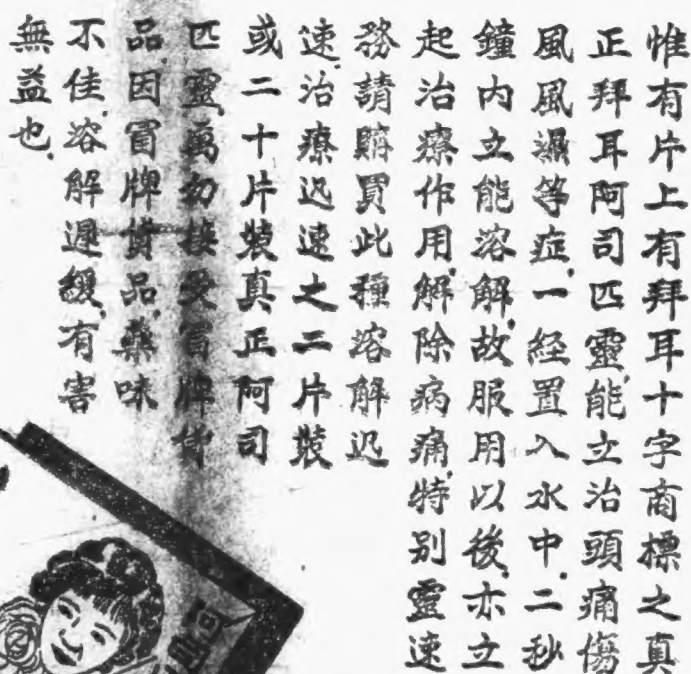 惟有片上有拜耳十字商標之真
正拜耳阿司匹靈能立治頭痛傷
風風濕等症一經置入水中二秒
鐘內立能溶解故服用以後亦立
起治療作用解除病痛特別靈速
務請購買此種溶解迅
速治療迅速之二片裝
或二十片裝真正阿司
匹靈萬勿接受冒牌
品因冒牌貨品藥味
不佳溶解遲緩有害
無益也